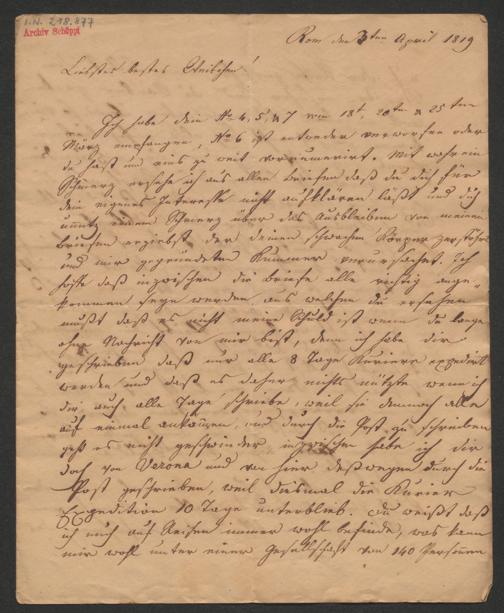 I.N. 218.877
Archiv Schöppl
Rom den 3ten April 1819
Liebstes bestes Weibchen!
Ich habe dein No 4, 5, & 7 vom 18t, 20ten & 25ten
März empfangen, No 6 ist entweder verworfen oder
du hast um eins zu weit vornumerirt. Mit wahrem
Schmerz ersehe ich aus allen Briefen daß du dich für
dein eigenes Interesse nicht aufklären laßt und dich
einem Schmerz über das Ausbleiben von meinen
Briefen ergiebst der deinen schwachen Körper zerstöhrt
und mir gegründeten Kummer verursachet. Ich
hoffe daß inzwischen die Briefe alle richtig ange-
kommen seyn werden, aus welchen du ersehen
mußt daß es nicht meine Schuld ist wenn du lange
ohne Nachricht von mir bist, denn ich habe dir
geschrieben daß nur alle 8 Tage Kuriere expedirt
werden und daß es daher nichts nützte wenn ich
dir auch alle Tage schriebe, weil sie dennoch alle
auf einmal ankommen, und durch die Post zu schreiben
geht es nicht geschwinder inzwischen habe ich dir
doch von Verona und von hier deßwegen durch die
Post geschrieben, weil diesmal die Kurier
Expedition 10 Tage unterblieb. Du weißt daß
ich mich auf Reisen immer wohl befinde, was kann
mir wohl unter einer Gesellschaft von 140 Personen